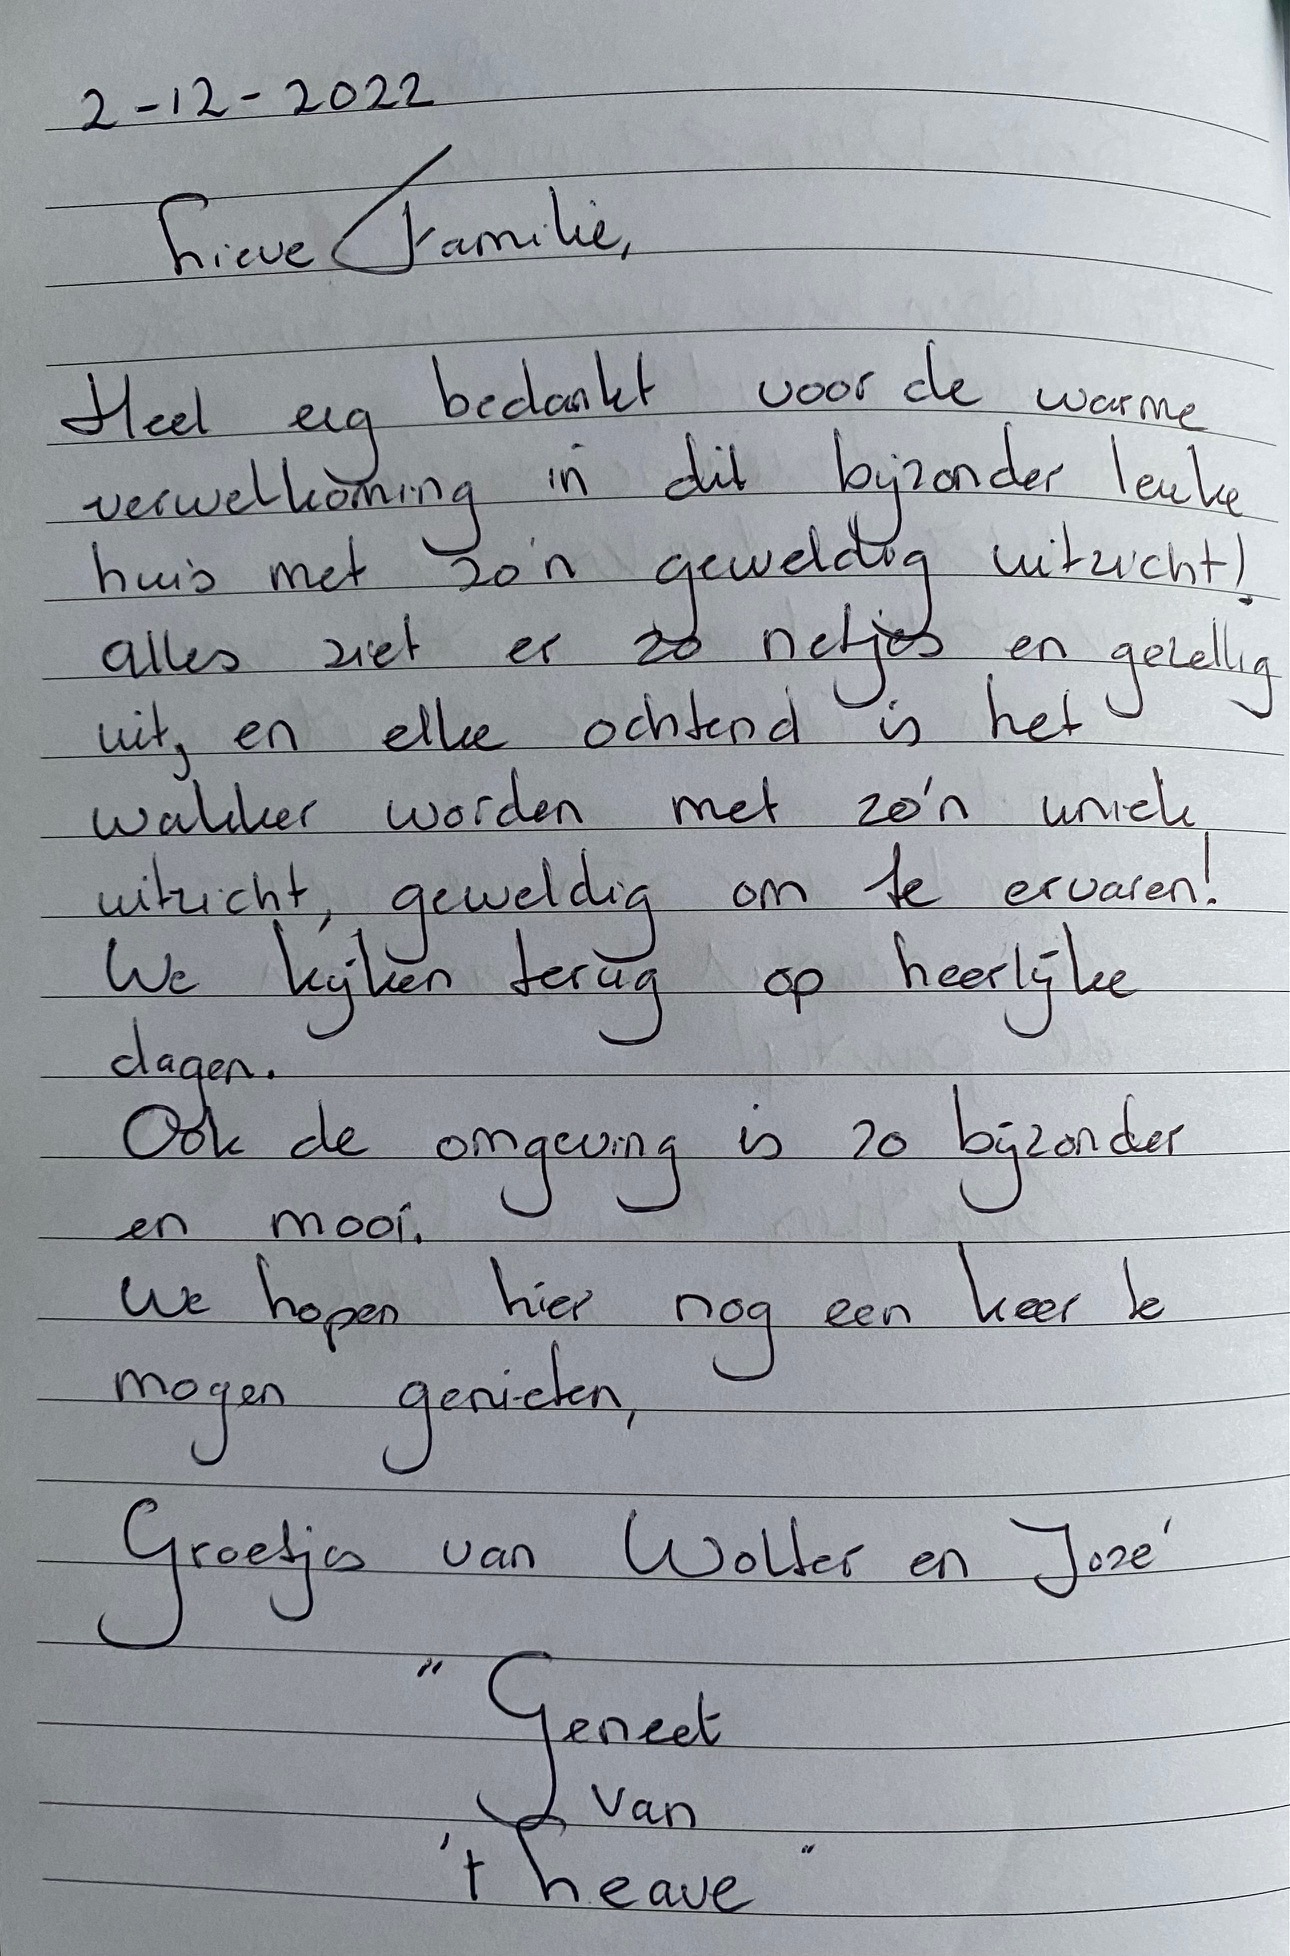 2-12-2022
Lieve Familie,
Heel erg bedankt voor de warme
verwelkoming in dit bijzonder leuke
huis met zo'n geweldig uitzicht!
alles ziet er zo netjes en gezellig
uit, en elke ochtend is het
wakker worden met zo'n uniek
uitzicht, geweldig om te ervaren!
We kijken terug op heerlijke
dagen.
Ook de omgeving is zo bijzonder
en mooi.
We hopen hier nog een keer te
mogen genieten,
Groetjes van Wolter en José
"Geneet
van
't heave"